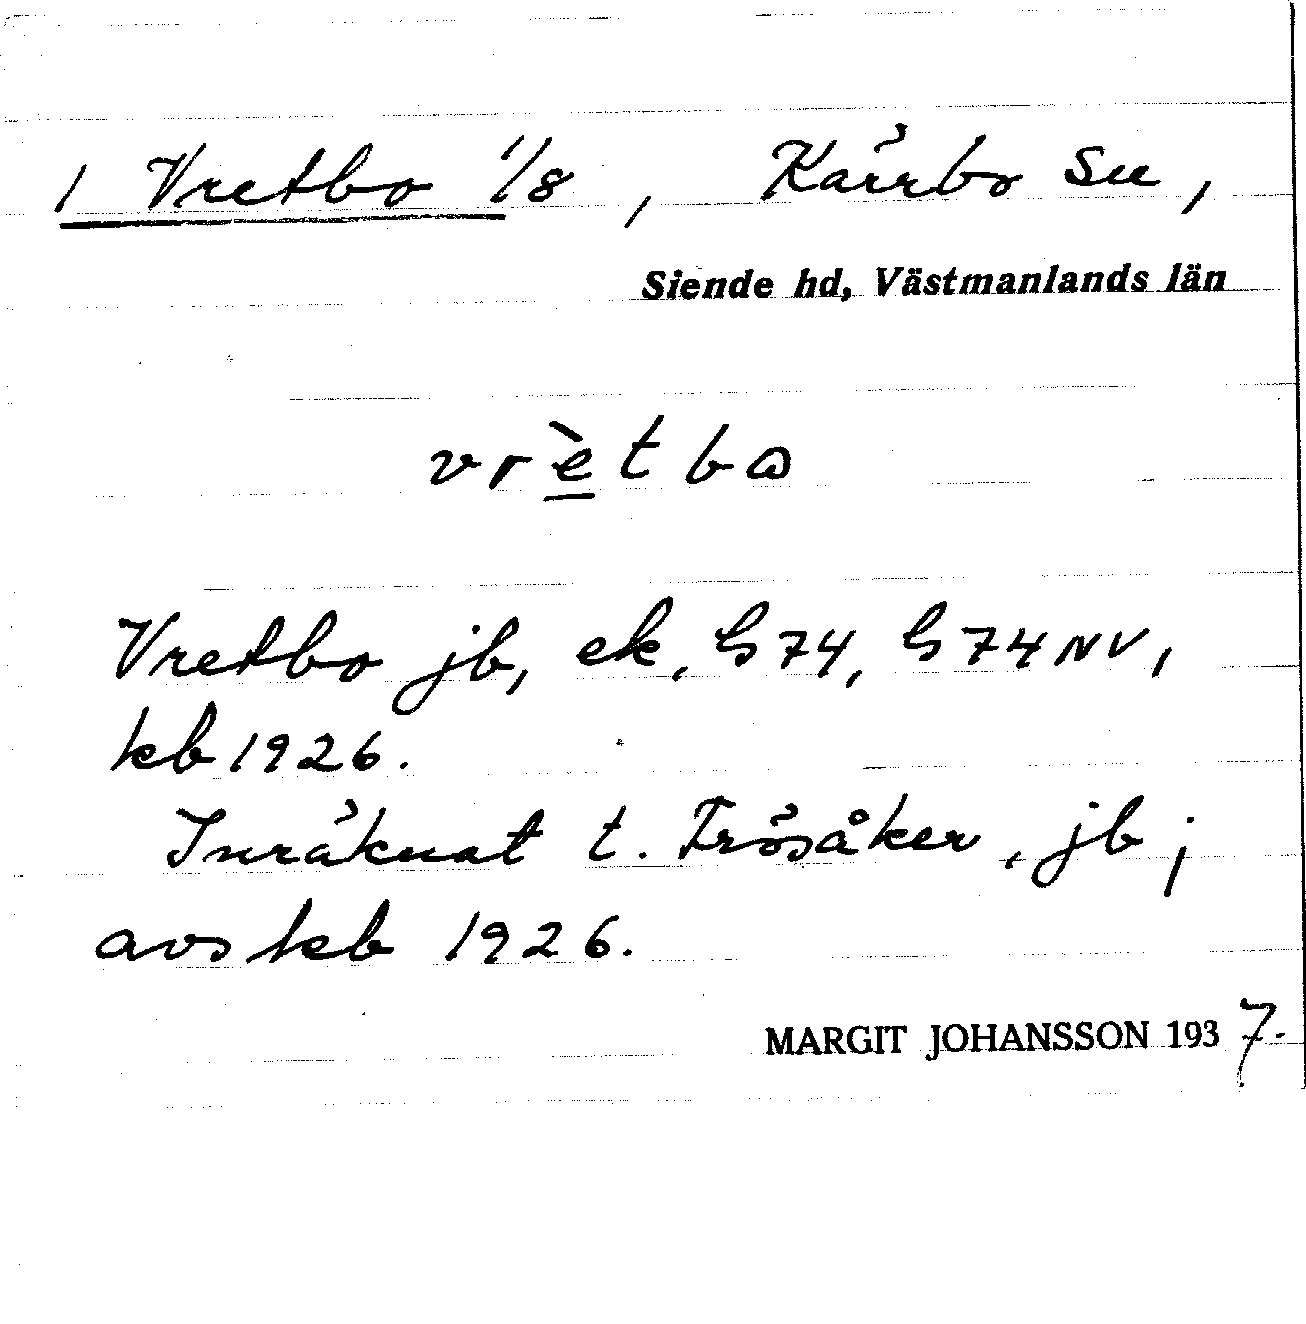 1 Vretbo 1/8, Kärrbo sn,
Siende hd, Västmanlands län
vrètbo
Vretbo jb, ek, G 74, G 74 NV,
kb 1926.
Inräknat t. Frösåker, jb;
avs kb 1926.
MARGIT JOHANSSON 1937.